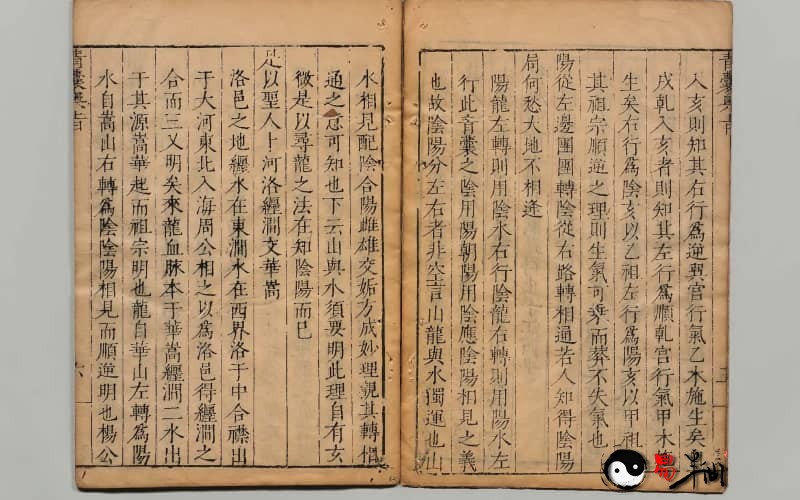 青囊奥旨
入亥則知其右行爲逆巽宫行氣乙木施生矣
戌乹入亥者則知其左行爲順乹宫行氣甲木
生矣右行爲陰亥以乙祖左行爲陽亥以甲祖
其祖宗順逆之理則生氣可乗而葬不失氣也
陽從左邊團團轉陰從右路轉相通若人知得陰陽
局何愁大地不相逢
陽龍左轉則用陰水右行陰龍右轉則用陽水左
行此青囊之陰用陽朝陽用陰應陰陽相見之義
也故陰陽分左右者非空言山龍與水獨運也山
水相見配陰合陽雌雄交姤方成妙理觀其轉相
通之意可知也下云山與水須要明此理自有玄
微是以尋龍之法在知陰陽而已
是以聖人卜河洛瀍澗文華嵩
洛邑之地瀍水在東澗水在西界洛于中合襟出
于大河東北入海周公相之以爲洛邑得瀍澗之
合而三又明矣來龍血脉本于華嵩瀍澗二水出
于其源嵩華起而祖宗明也龍自華山左轉爲陽
水自嵩山右轉爲陰陰陽相見而順逆明也楊公
青囊奥旨
六